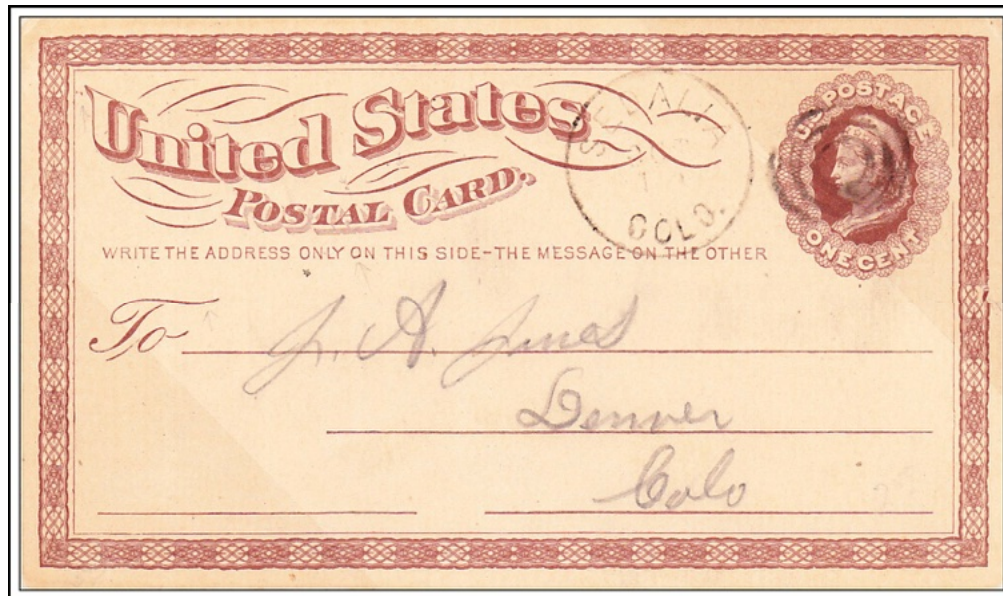 United States
POSTAL CARD.
U.S. POSTAGE
ONE CENT
SEDALIA
COLO.
WRITE THE ADDRESS ONLY ON THIS SIDE-THE MESSAGE ON THE OTHER
To J. A. Jones
Denver
Colo